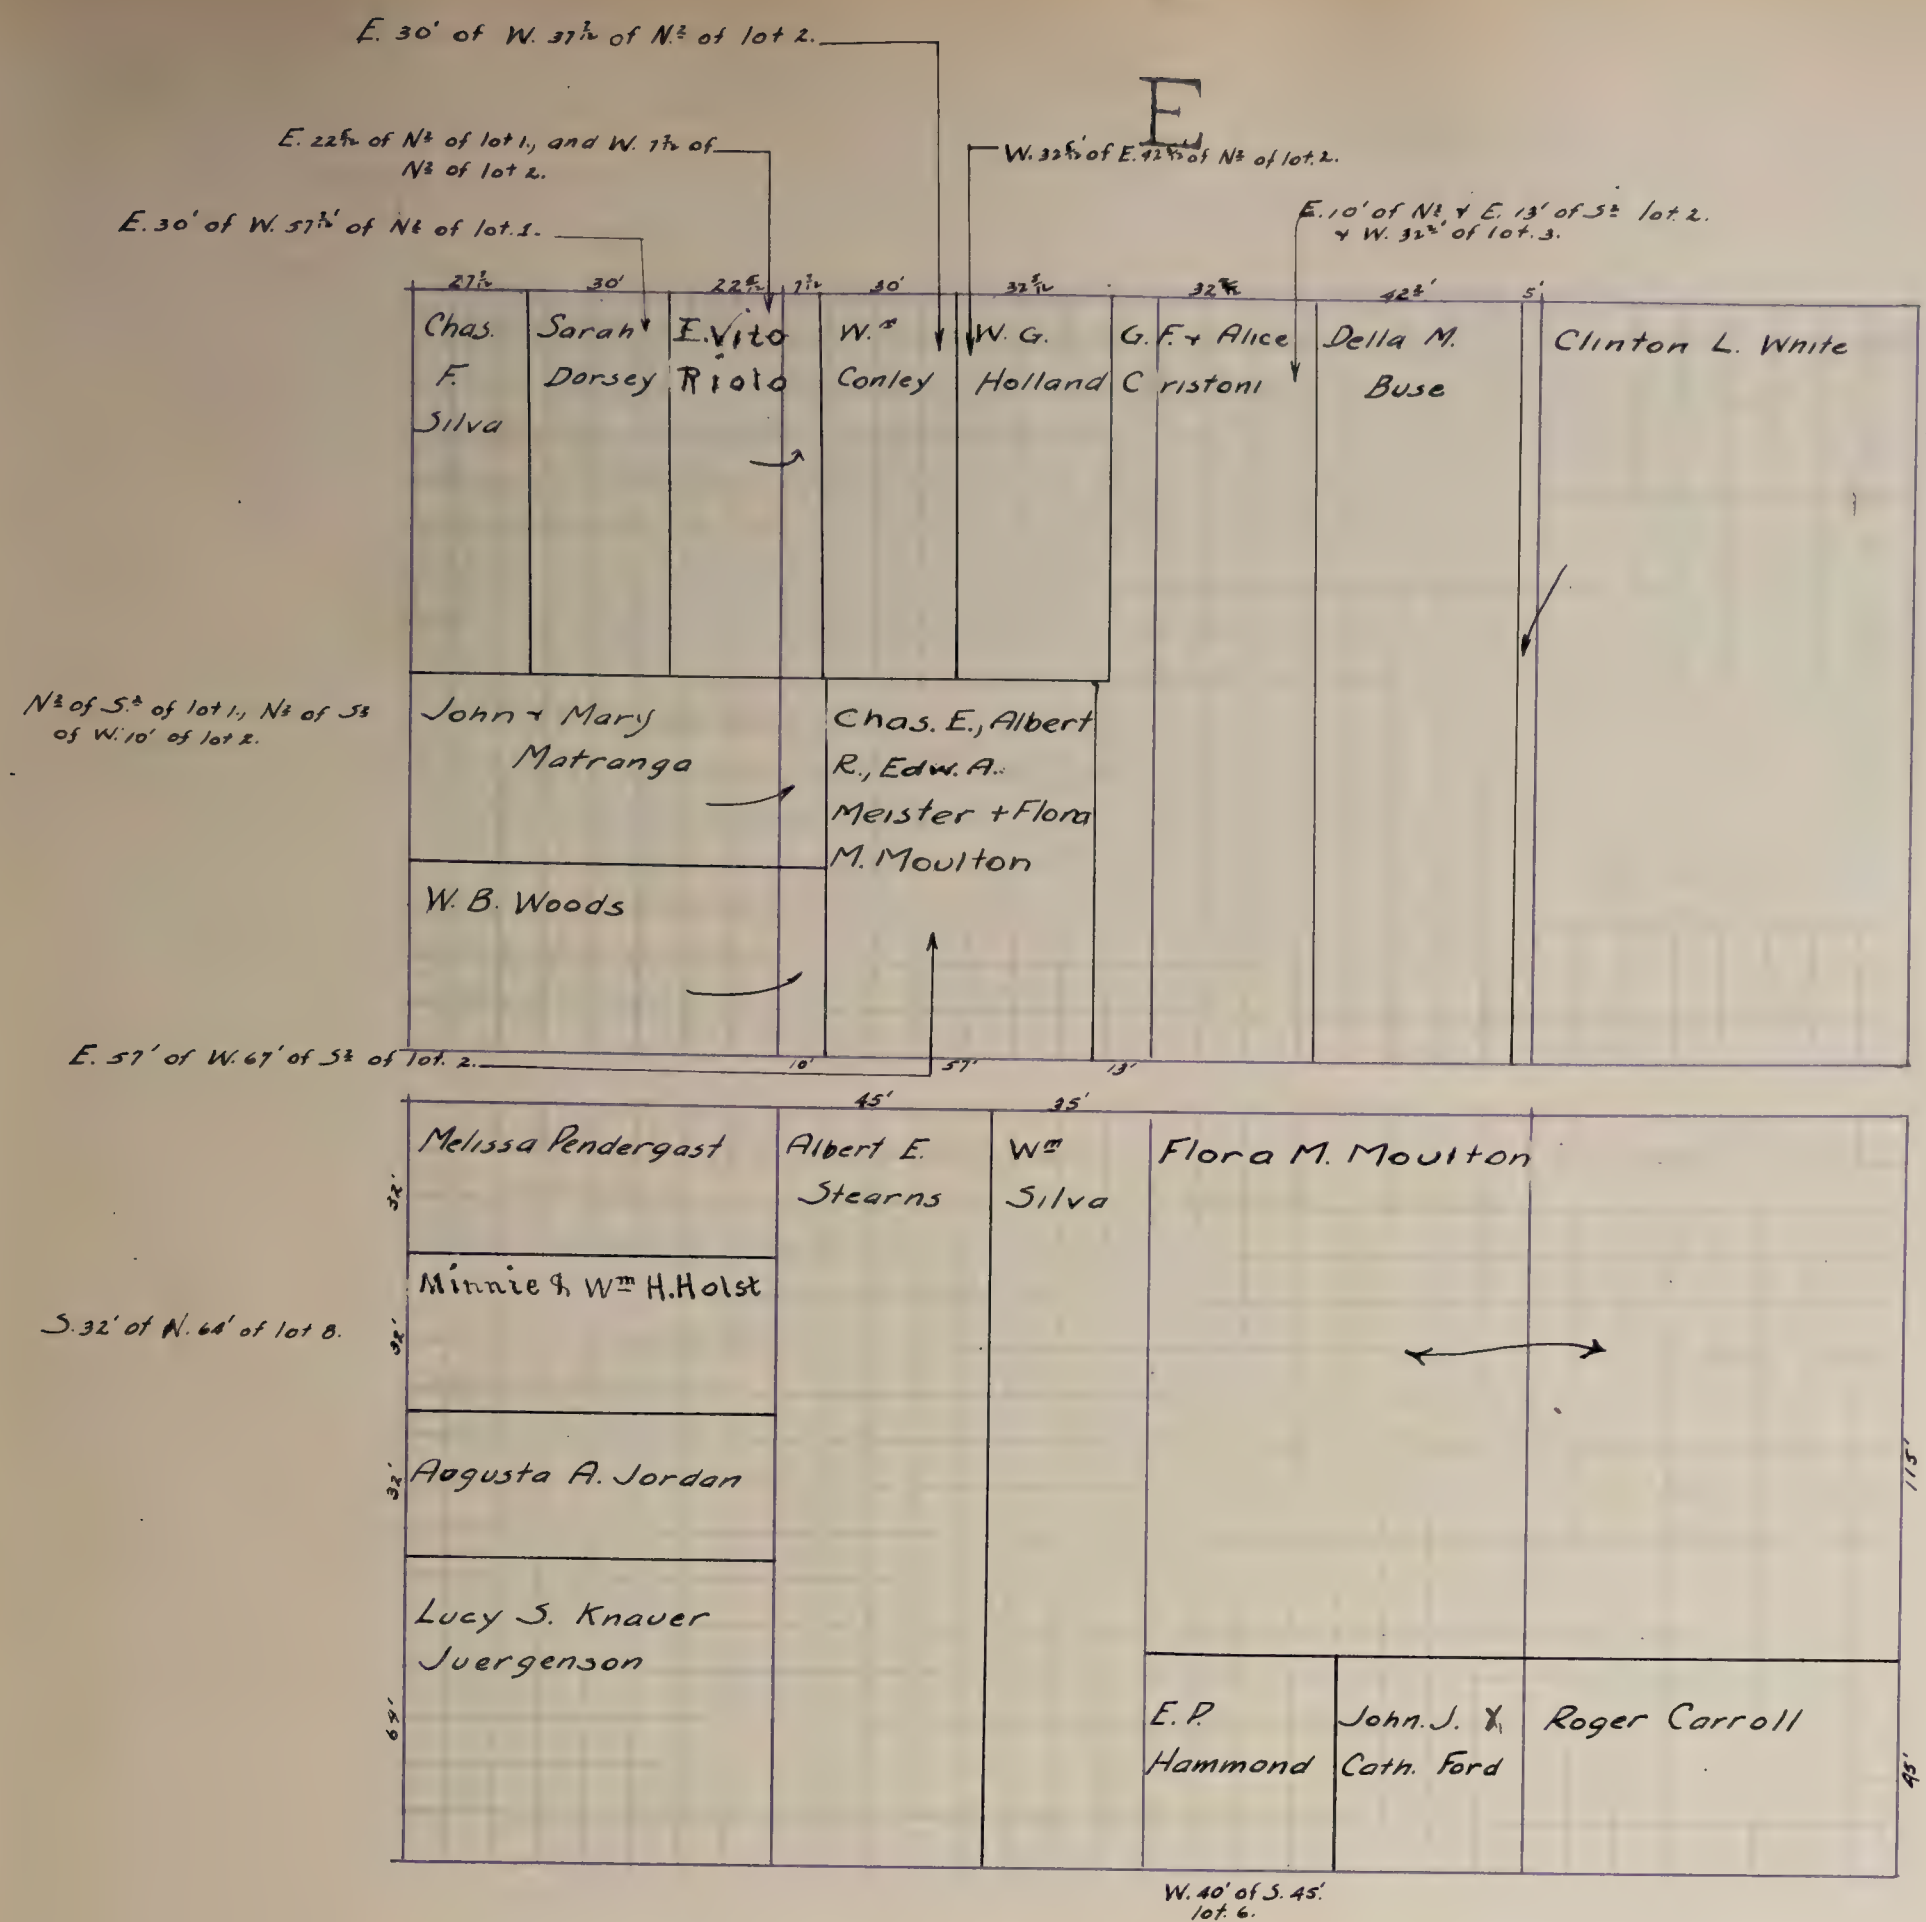 E. 30' of W. 37 7/12 of N.½ of lot 2.
E
E. 22 5/12 of N½ of lot 1., and W. 7 7/12 of
N½ of lot 2.
W. 32 5/12' of E. 42 5/12' of N½ of lot. 2.
E. 30' of W. 57 7/12' of N½ of lot. 1.
E. 10' of N½ & E. 13' of S½ lot. 2.
& W. 32½' of lot. 3.
27 7/12 30' 22 5/12 7 7/12 30' 32 5/12 42½' 5'
Chas.
F.
Silva
Sarah
Dorsey
E. Vito
Riolo
W.m
Conley
W. G.
Holland
G. F. & Alice
Cristoni
Della M.
Buse
Clinton L. White
N½ of S.½ of lot 1., N½ of S½
of W. 10' of lot 2.
John & Mary
Matranga
Chas. E., Albert
R., Edw. A.
Meister + Flora
M. Moulton
W. B. Woods
E. 57' of W. 67' of S½ of lot. 2.
10' 57' 13'
45' 35'
32'
Melissa Pendergast
Albert E.
Stearns
Wm
Silva
Flora M. Moulton
S. 32' of N. 64' of lot 8.
32'
Minnie & Wm H. Holst
32'
Augusta A. Jordan
115'
64'
Lucy S. Knauer
Juergenson
E. P.
Hammond
John. J. &
Cath. Ford
Roger Carroll
45'
W. 40' of S. 45'.
lot. 6.